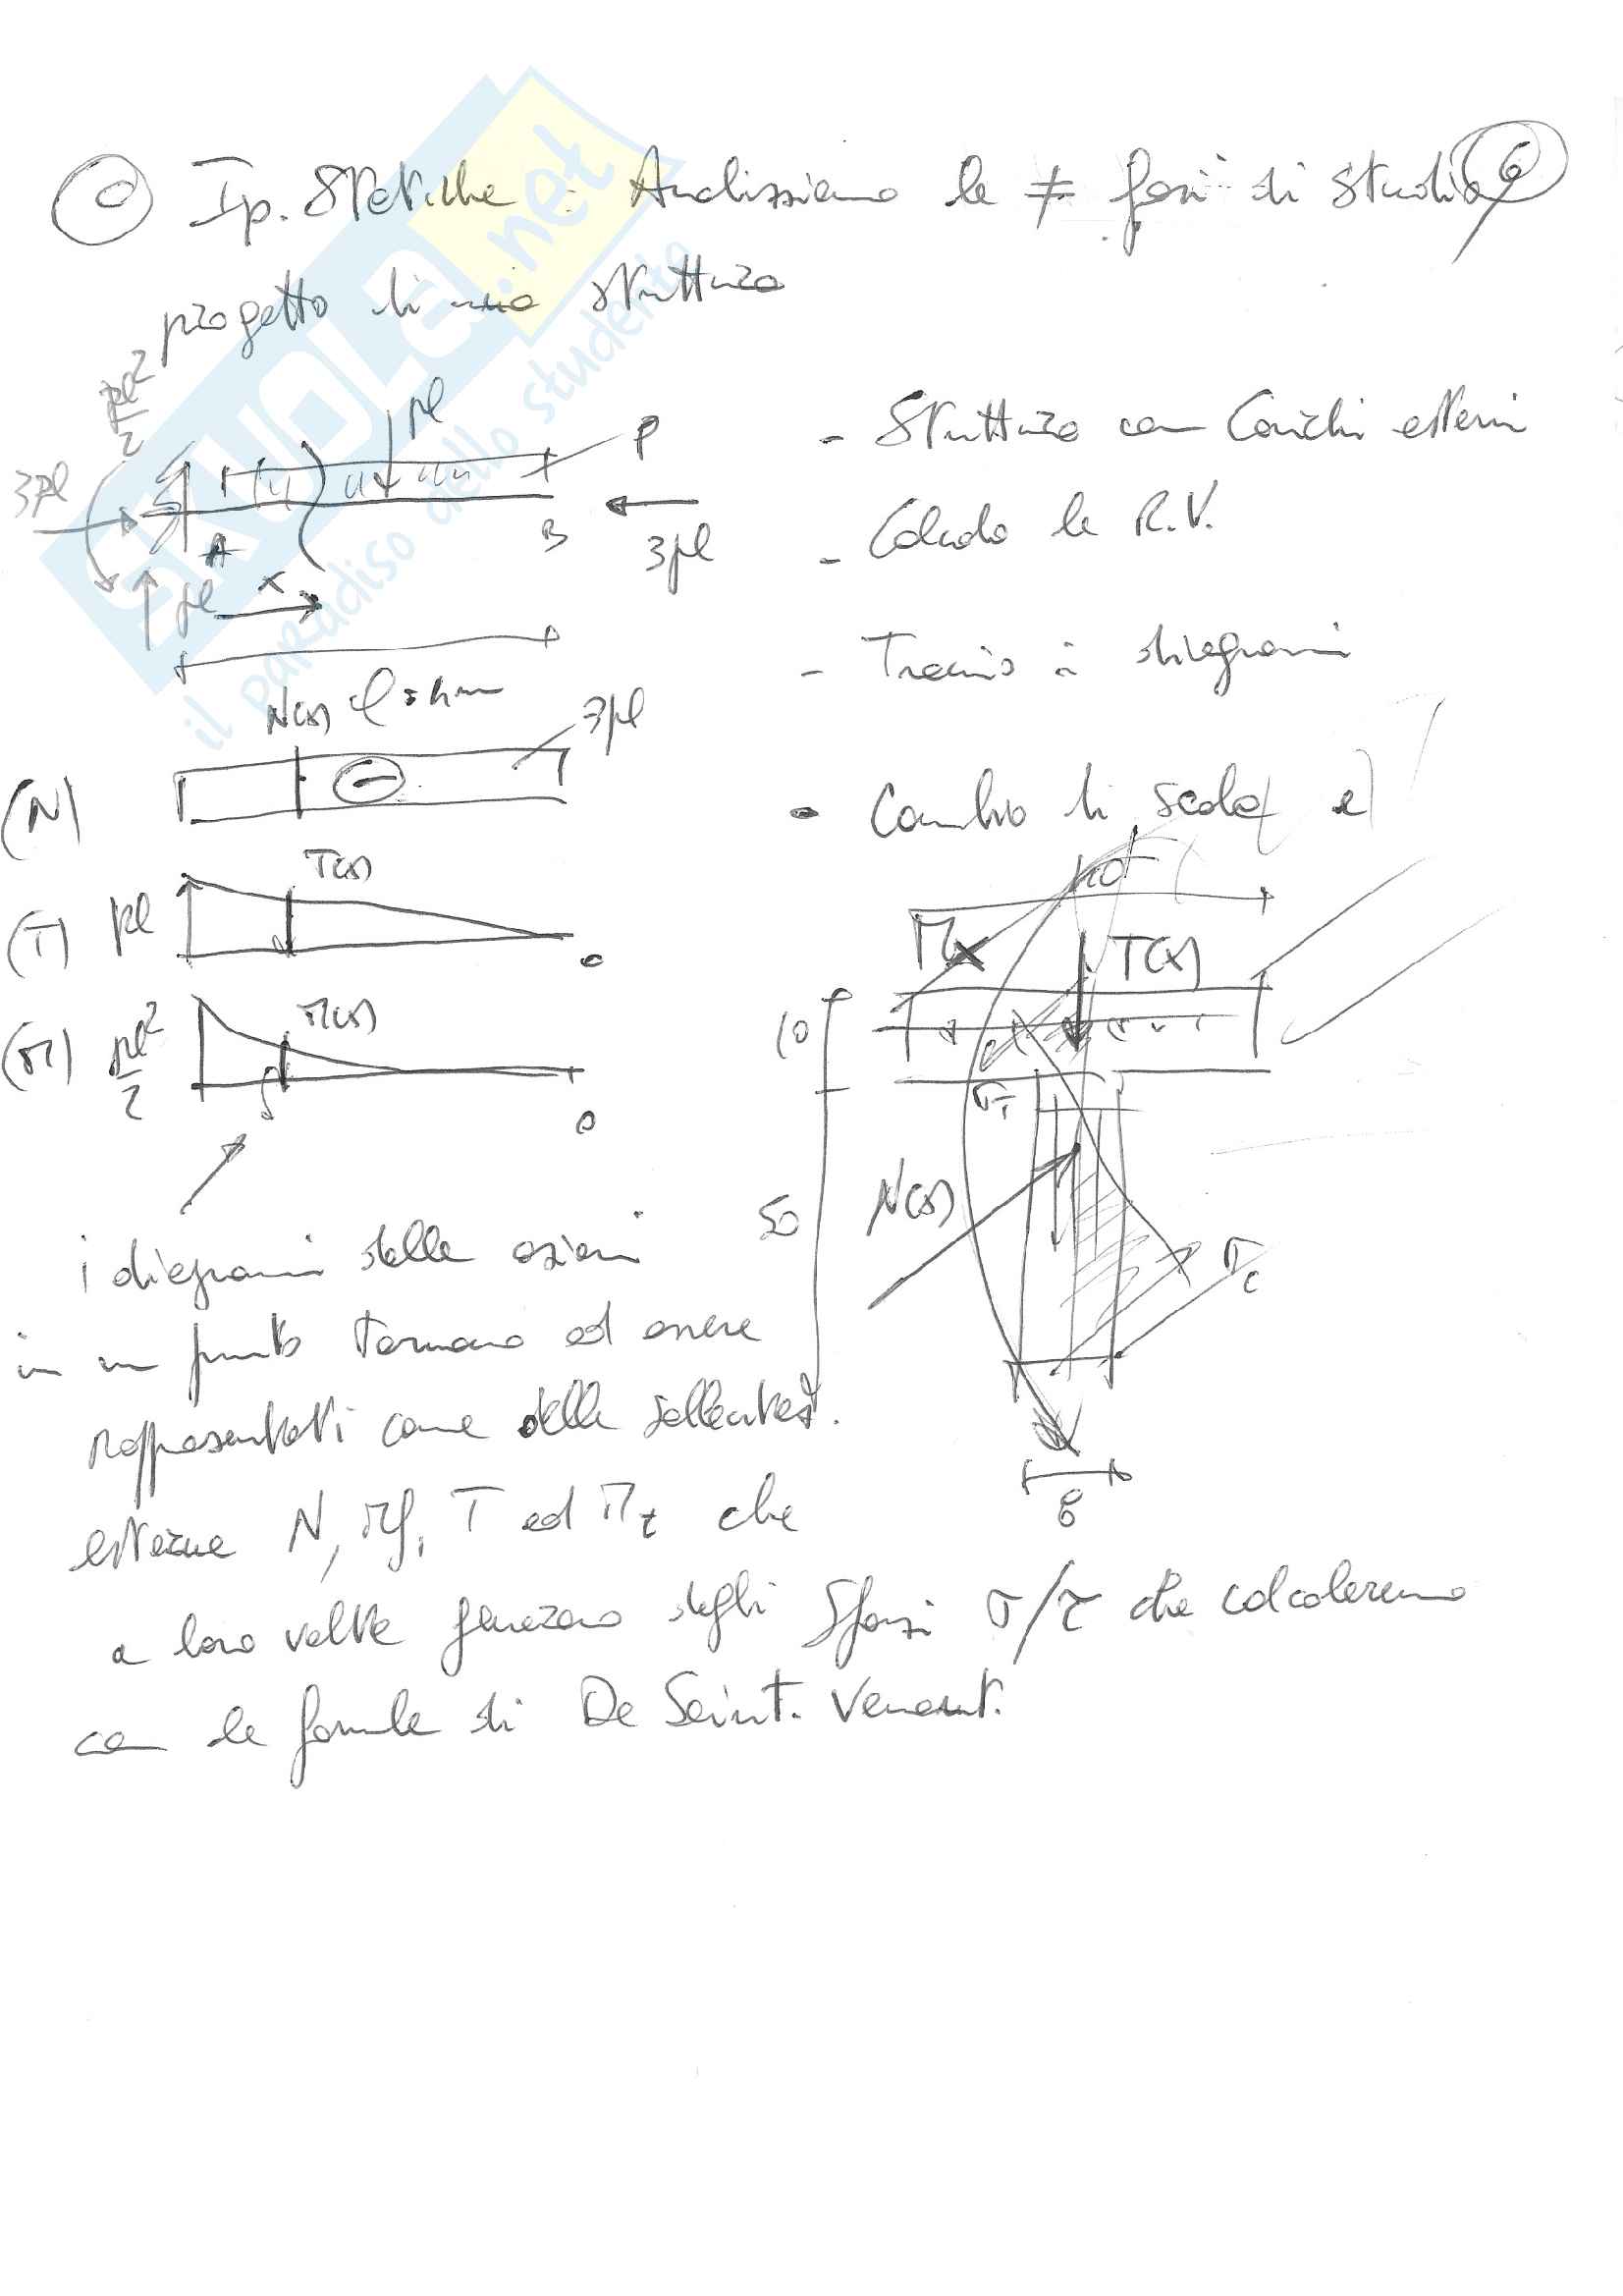 C Ip. Statiche : Analizziamo le ≠ fasi di studio 6
progetto di una struttura
SKUOLA.net
il paradiso dello studente
pl²/2
pl
P
3pl
A
B
3pl
pl
x
- Struttura con Carichi esterni
- Calcolo le R.V.
- Traccio i diagrammi
- Cambio di scala e
N(x) l = 4m
3pl
(N)
T(x)
(T) pl
o
M(x)
(M) pl²/2
o
Mx
T(x)
10
σT
50
N(x)
σc
8
i diagrammi delle azioni
in un punto tornano ad essere
rappresentati come delle sollecitaz.
esterne N, Mf, T ed Mt che
a loro volta generano degli Sforzi σ/τ che calcoleremo
con le formule di De Saint. Venant.